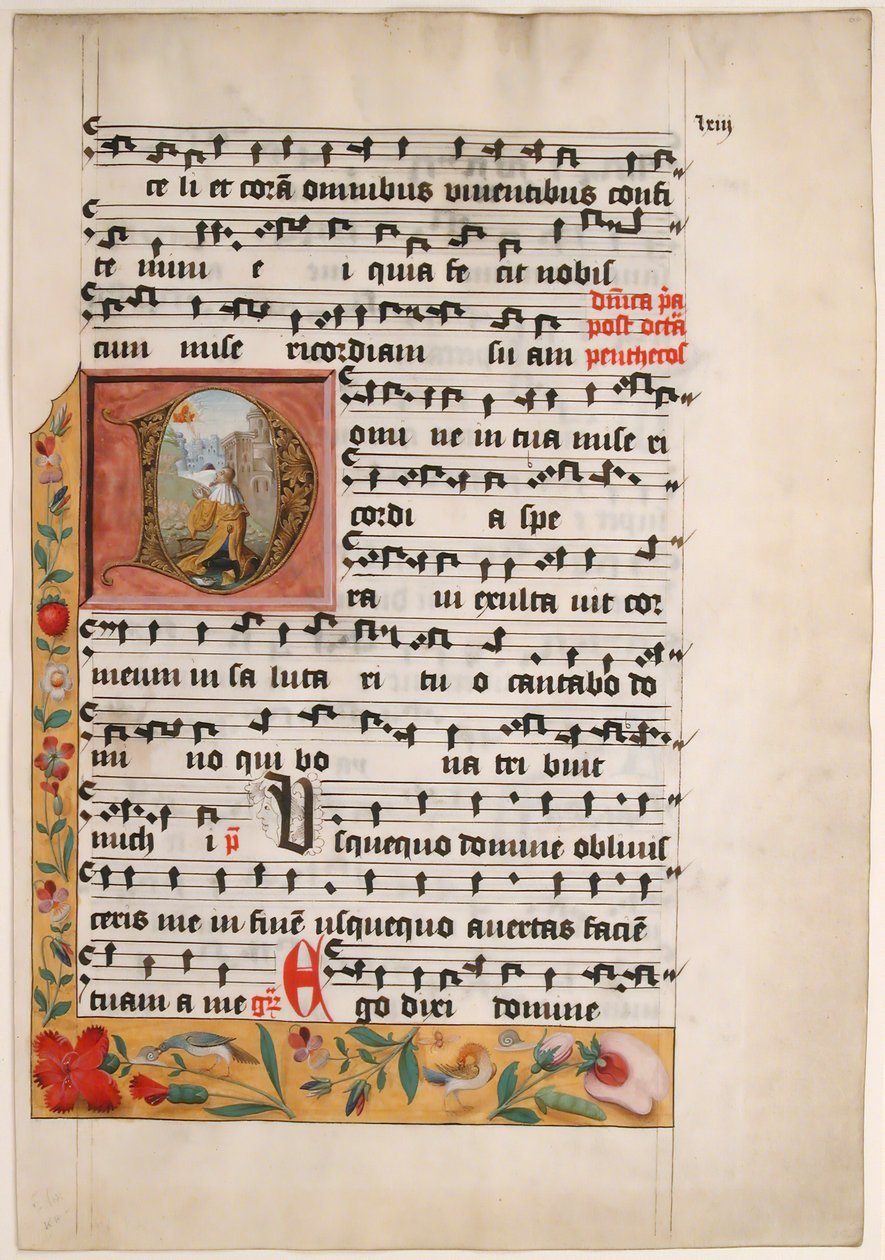 lxiij
ce li et corā omnibus viuentibus confi
te mini e i quia fe cit nobis
cum mise ricordiam su am
dn̄ica p̄a
post octā
penthecos
Domi ne in tua mise ri
cordi a spe
ra ui exulta uit cor
meum in sa luta ri tu o cantabo do
mi no qui bo na tri buit
mich i p̄
Vsquequo domine obliuis
ceris me in finē usquequo auertas faciē
tuam a me gr̄
Ego dixi domine